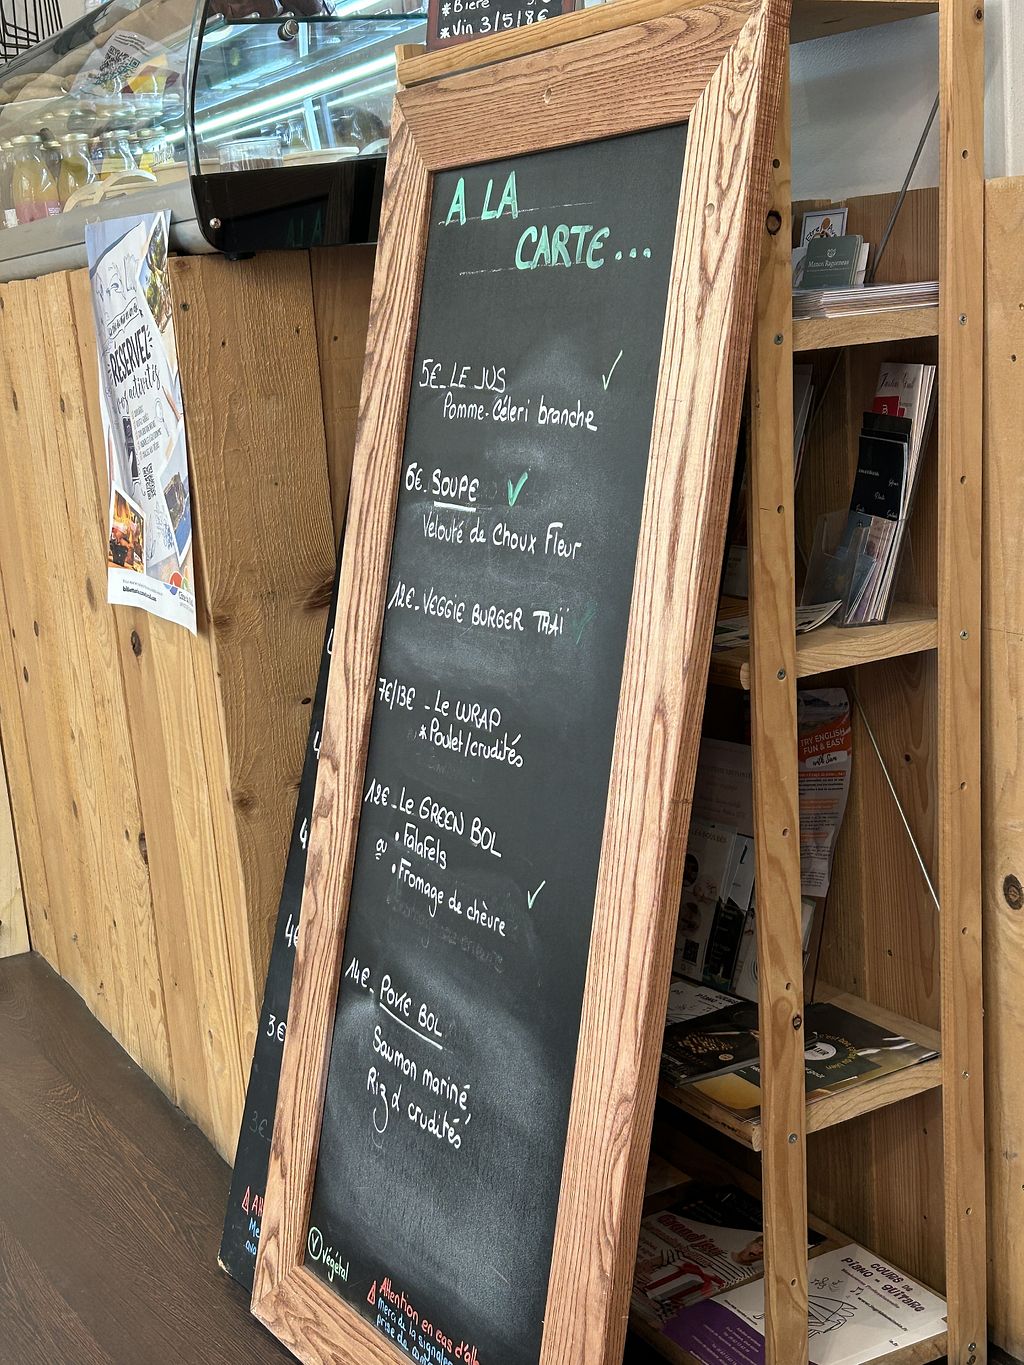 *Bière
*Vin 3/5/8€
A LA
CARTE...
5€_ LE JUS ✓
Pomme-Céleri branche
6€_ SOUPE ✓
Velouté de Choux Fleur
12€_ VEGGIE BURGER THAÏ ✓
7€/13€ - Le WRAP
*Poulet/crudités
12€_ Le GREEN BOL
• Falafels
ou • Fromage de chèvre ✓
14€_ POKE BOL
Saumon mariné,
Riz & crudités
V végétal
⚠ Attention en cas d'all
merci de la signaler
prise de
3€
RÉSERVEZ
vos activités
Manon Ragueneau
TRY ENGLISH
FUN & EASY
with Sam
COURS DE
PIANO - GUITARE